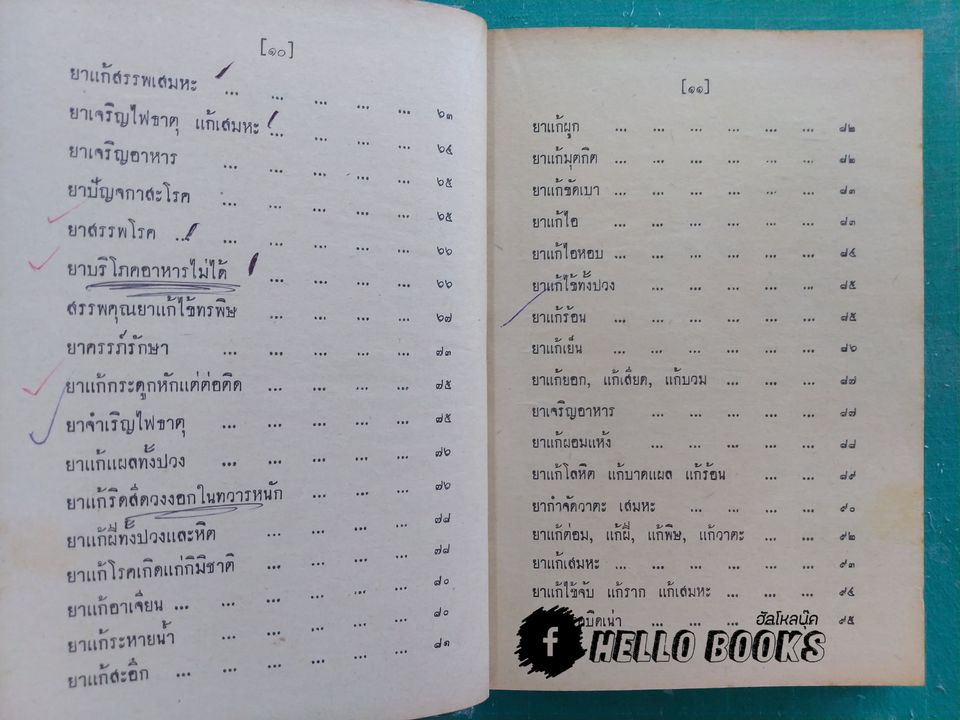 [๑๐]
ยาแก้สรรพเสมหะ ... ... ... ... ... ๖๓
ยาเจริญไฟธาตุ แก้เสมหะ ... ... ... ... ๖๔
ยาเจริญอาหาร ... ... ... ... ... ๖๕
ยาปัญจกาสะโรค ... ... ... ... ... ๖๕
ยาสรรพโรค ... ... ... ... ... ... ๖๖
ยาบริโภคอาหารไม่ได้ ... ... ... ... ๖๖
สรรพคุณยาแก้ไข้ทรพิษ ... ... ... ... ๖๗
ยาครรภ์รักษา ... ... ... ... ... ๗๓
ยาแก้กระดูกหักแต่ต่อติด ... ... ... ... ๗๕
ยาจำเริญไฟธาตุ ... ... ... ... ... ๗๕
ยาแก้แผลทั้งปวง ... ... ... ... ... ๗๖
ยาแก้ริดสีดวงงอกในทวารหนัก ... ... ... ๗๖
ยาแก้ฝีทั้งปวงและหิด ... ... ... ... ๗๘
ยาแก้โรคเกิดแก่กิมิชาติ ... ... ... ... ๗๘
ยาแก้อาเจียน ... ... ... ... ... ... ๘๐
ยาแก้ระหายน้ำ ... ... ... ... ... ... ๘๐
ยาแก้สะอึก ... ... ... ... ... ... ๘๑
[๑๑]
ยาแก้ผูก ... ... ... ... ... ... ๘๒
ยาแก้มุตกิต ... ... ... ... ... ... ๘๒
ยาแก้ขัดเบา ... ... ... ... ... ... ๘๓
ยาแก้ไอ ... ... ... ... ... ... ๘๓
ยาแก้ไอหอบ ... ... ... ... ... ... ๘๔
ยาแก้ไข้ทั้งปวง ... ... ... ... ... ๘๕
ยาแก้ร้อน ... ... ... ... ... ... ๘๕
ยาแก้เย็น ... ... ... ... ... ... ๘๖
ยาแก้ยอก, แก้เสียด, แก้บวม ... ... ... ๘๗
ยาเจริญอาหาร ... ... ... ... ... ๘๗
ยาแก้ผอมแห้ง ... ... ... ... ... ๘๘
ยาแก้โลหิต แก้บาดแผล แก้ร้อน ... ... ... ๘๙
ยากำจัดวาตะ เสมหะ ... ... ... ... ๙๐
ยาแก้ต่อม, แก้ฝี, แก้พิษ, แก้วาตะ ... ... ๙๒
ยาแก้เสมหะ ... ... ... ... ... ... ๙๓
ยาแก้ไข้จับ แก้ราก แก้เสมหะ ... ... ... ๙๔
บิดเน่า ... ๙๕
ฮัลโหลบุ๊ค
f HELLO BOOKS